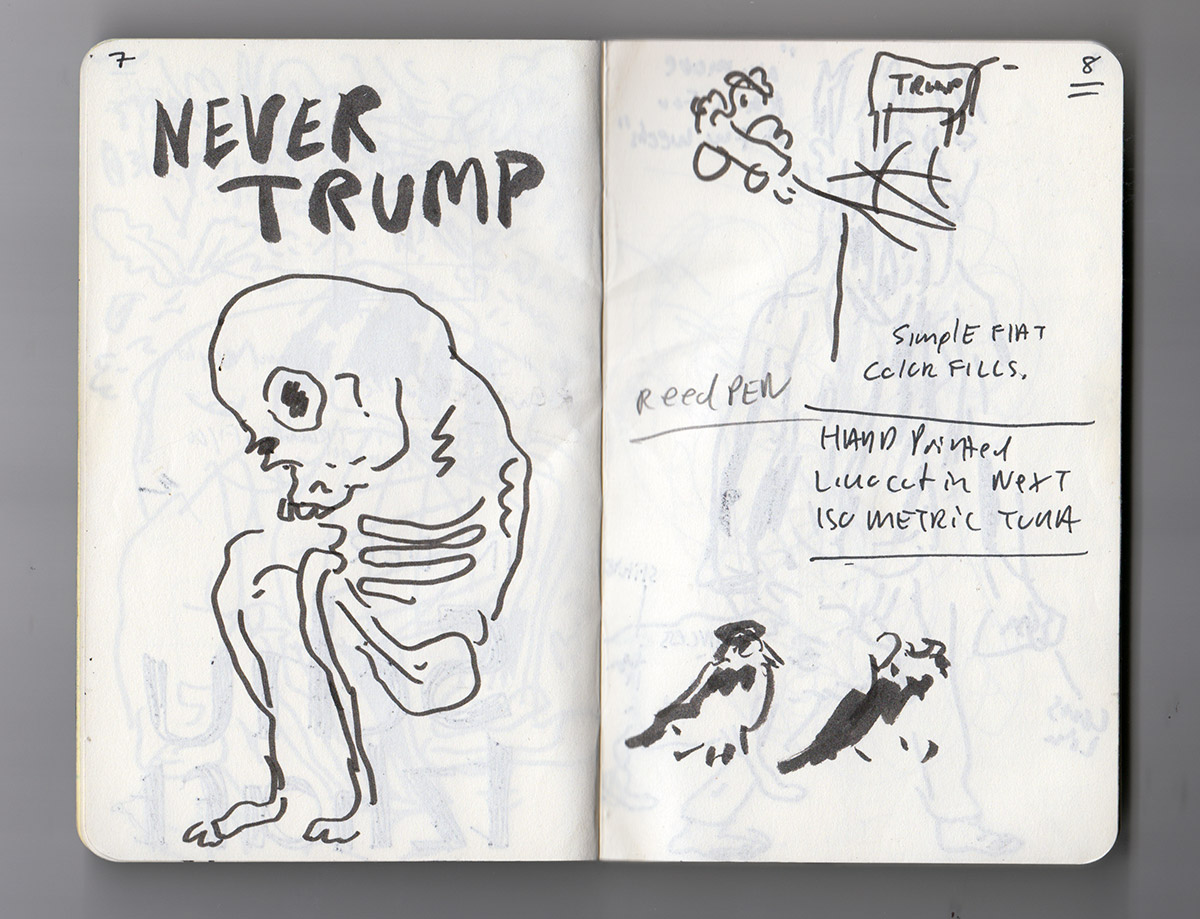 7
NEVER
TRUMP
8
TRUMP
SimplE FlAT
Color FILLS.
Reed PEN
HAND Painted
in NexT
ISO METRIC